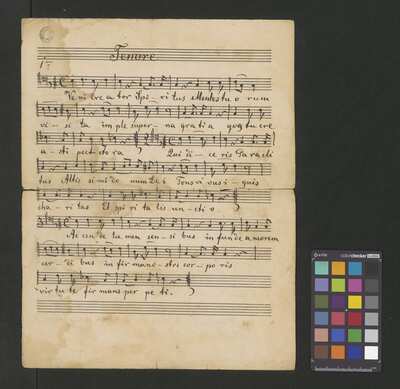 Tenore
Veni Creator Spi-ritus Mentes tuorum
vi-si ta imple super-na gratia quae tu cre
a-sti pectora
Qui di-ceris Paracli
tus Altis si mi de num Dei Fons vivus i-gnis
cha-ri tas Et spi ri ta lis unc ti o
Ac cen de lu men sen-si bus in fun de amorem
cor-di bus in fir ma no-stri cor-po ris
vir tu te fir mans per pe ti